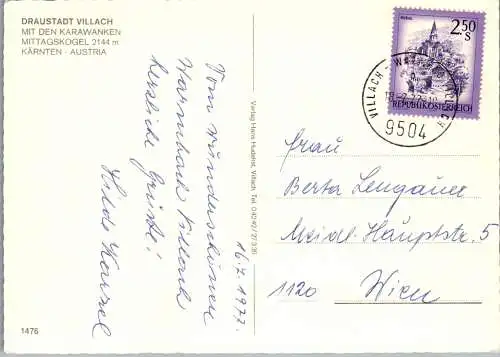 DRAUSTADT VILLACH
MIT DEN KARAWANKEN
MITTAGSKOGEL 2144 m
KÄRNTEN · AUSTRIA
Vom wunderschönen
Warmbach Villach
herzliche Grüße!
Hilde
16.7.1977.
Verlag Hans Huderist, Villach, Tel.
2.50
S
REPUBLIK ÖSTERREICH
VILLACH - WA
9504
Frau
Berta Lengauer
Meidl. Hauptstr. 5
1120 Wien
1476